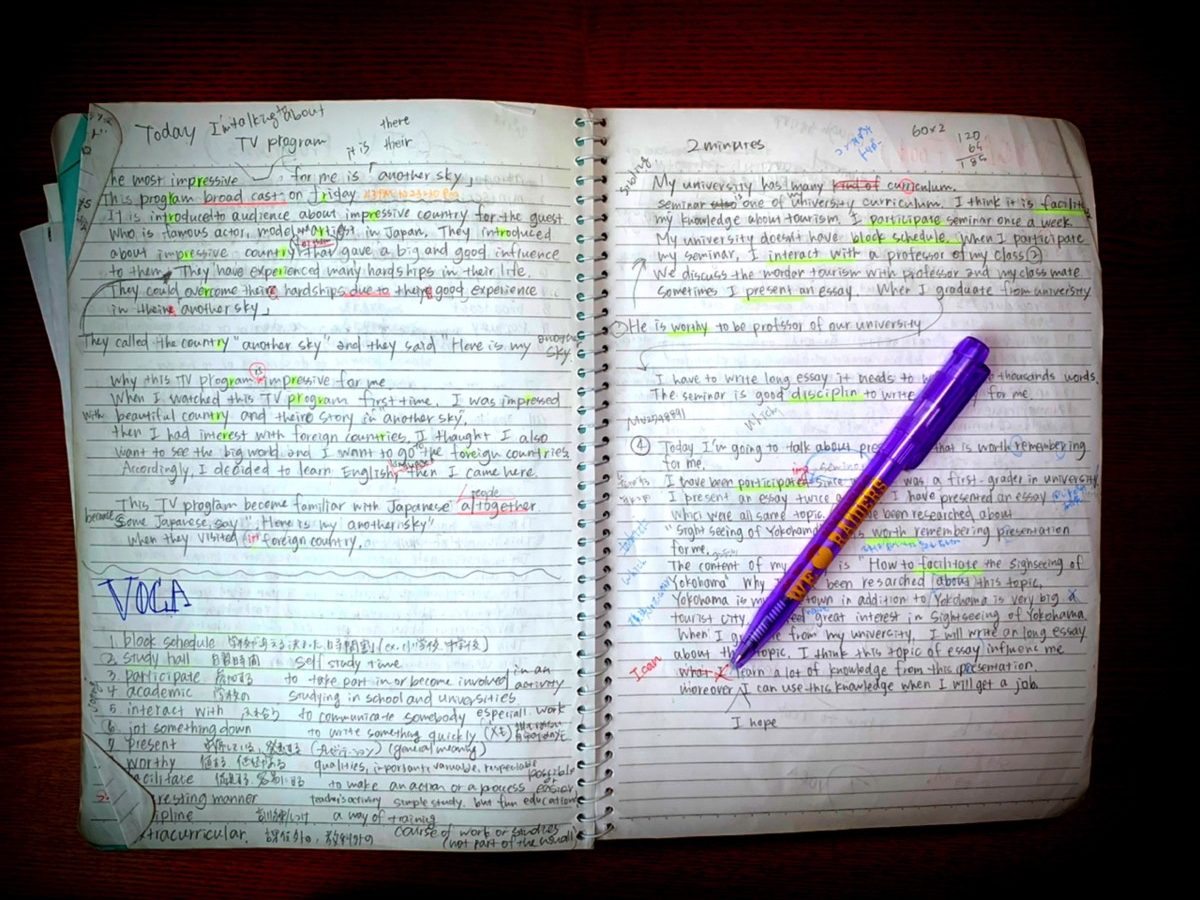 Today I'm talking about
TV program
there
it is their
he most impressive for me is 「another sky」
This program broad cast on friday
It is introduced to audience about impressive country for the guest
who is famous actor, model artist in Japan. They introduced
about impressive country that gave a big and good influence
to them. They have experienced many hardships in their life.
They could overcome their hardships due to their good experience
in their another sky」
They called the country "another sky" and they said "Here is my another
sky.
Why this TV program is impressive for me
When I watched this TV program first time, I was impressed
with beautiful country and their story in "another sky".
then I had interest with foreign countries. I thaught I also
want to see the big world and I want to go to the foreign countries
Accordingly, I decided to learn English, then I came here.
people
This TV program become familiar with Japanese altogether
because some Japanese say "Here is my another sky"
when they visited in foreign country.
VOCA
1. block schedule
2. study hall 自習時間 self study time
3. participate 参加する to take part in or become involved in an
activity
4 academic studying in school and unversities
5 interact with to communicate somebody especiall work
6. jot something down to write something quickly
7 present (general meaning)
worthy qualities, important, variable, respectable
facilitate to make an action or a process easier possible
resting manner teacher's activity simple study. but fun education
ipline a way of training
tracurricular. course of work or studies
(not part of the usual)
2 minutes
60x2
120
sibling
My university has many kind of curriculum.
seminar one of university curriculum. I think it is facilit
my knowledge about tourism. I participate seminar once a week
My university doesn't have block schedule. When I participate
my seminar, I interact with a professor of my class ②
We discuss the mordar tourism with professor and my class mate.
Sometimes I present an essay. When I graduate from university
He is worthy to be profssor of our university
I have to write long essay it needs to w thousands words.
The seminar is good disciplin to write for me.
which
④ Today I'm going to talk about pres that is worth remembering
for me.
I have been participated since was a first-grader in university
I present an essay twice a I have presented an essay
which were all same topic. been researched about
"Sight seeing of Yokohama worth remembering presentation
for me.
The content of my is "How to facilitate the sighseeing of
Yokohama" Why been resarched about this topic.
Yokohama is my town in addition to Yokohama is very big a
tourist city. feel great interest in sightseeing of Yokohama.
When I gr from my university, I will write an long essay
about th topic. I think this topic of essay influens me
I can
what learn a lot of knowledge from this presentation.
moreover I can use this knowledge when I will get a job.
I hope
WE RAIDERS